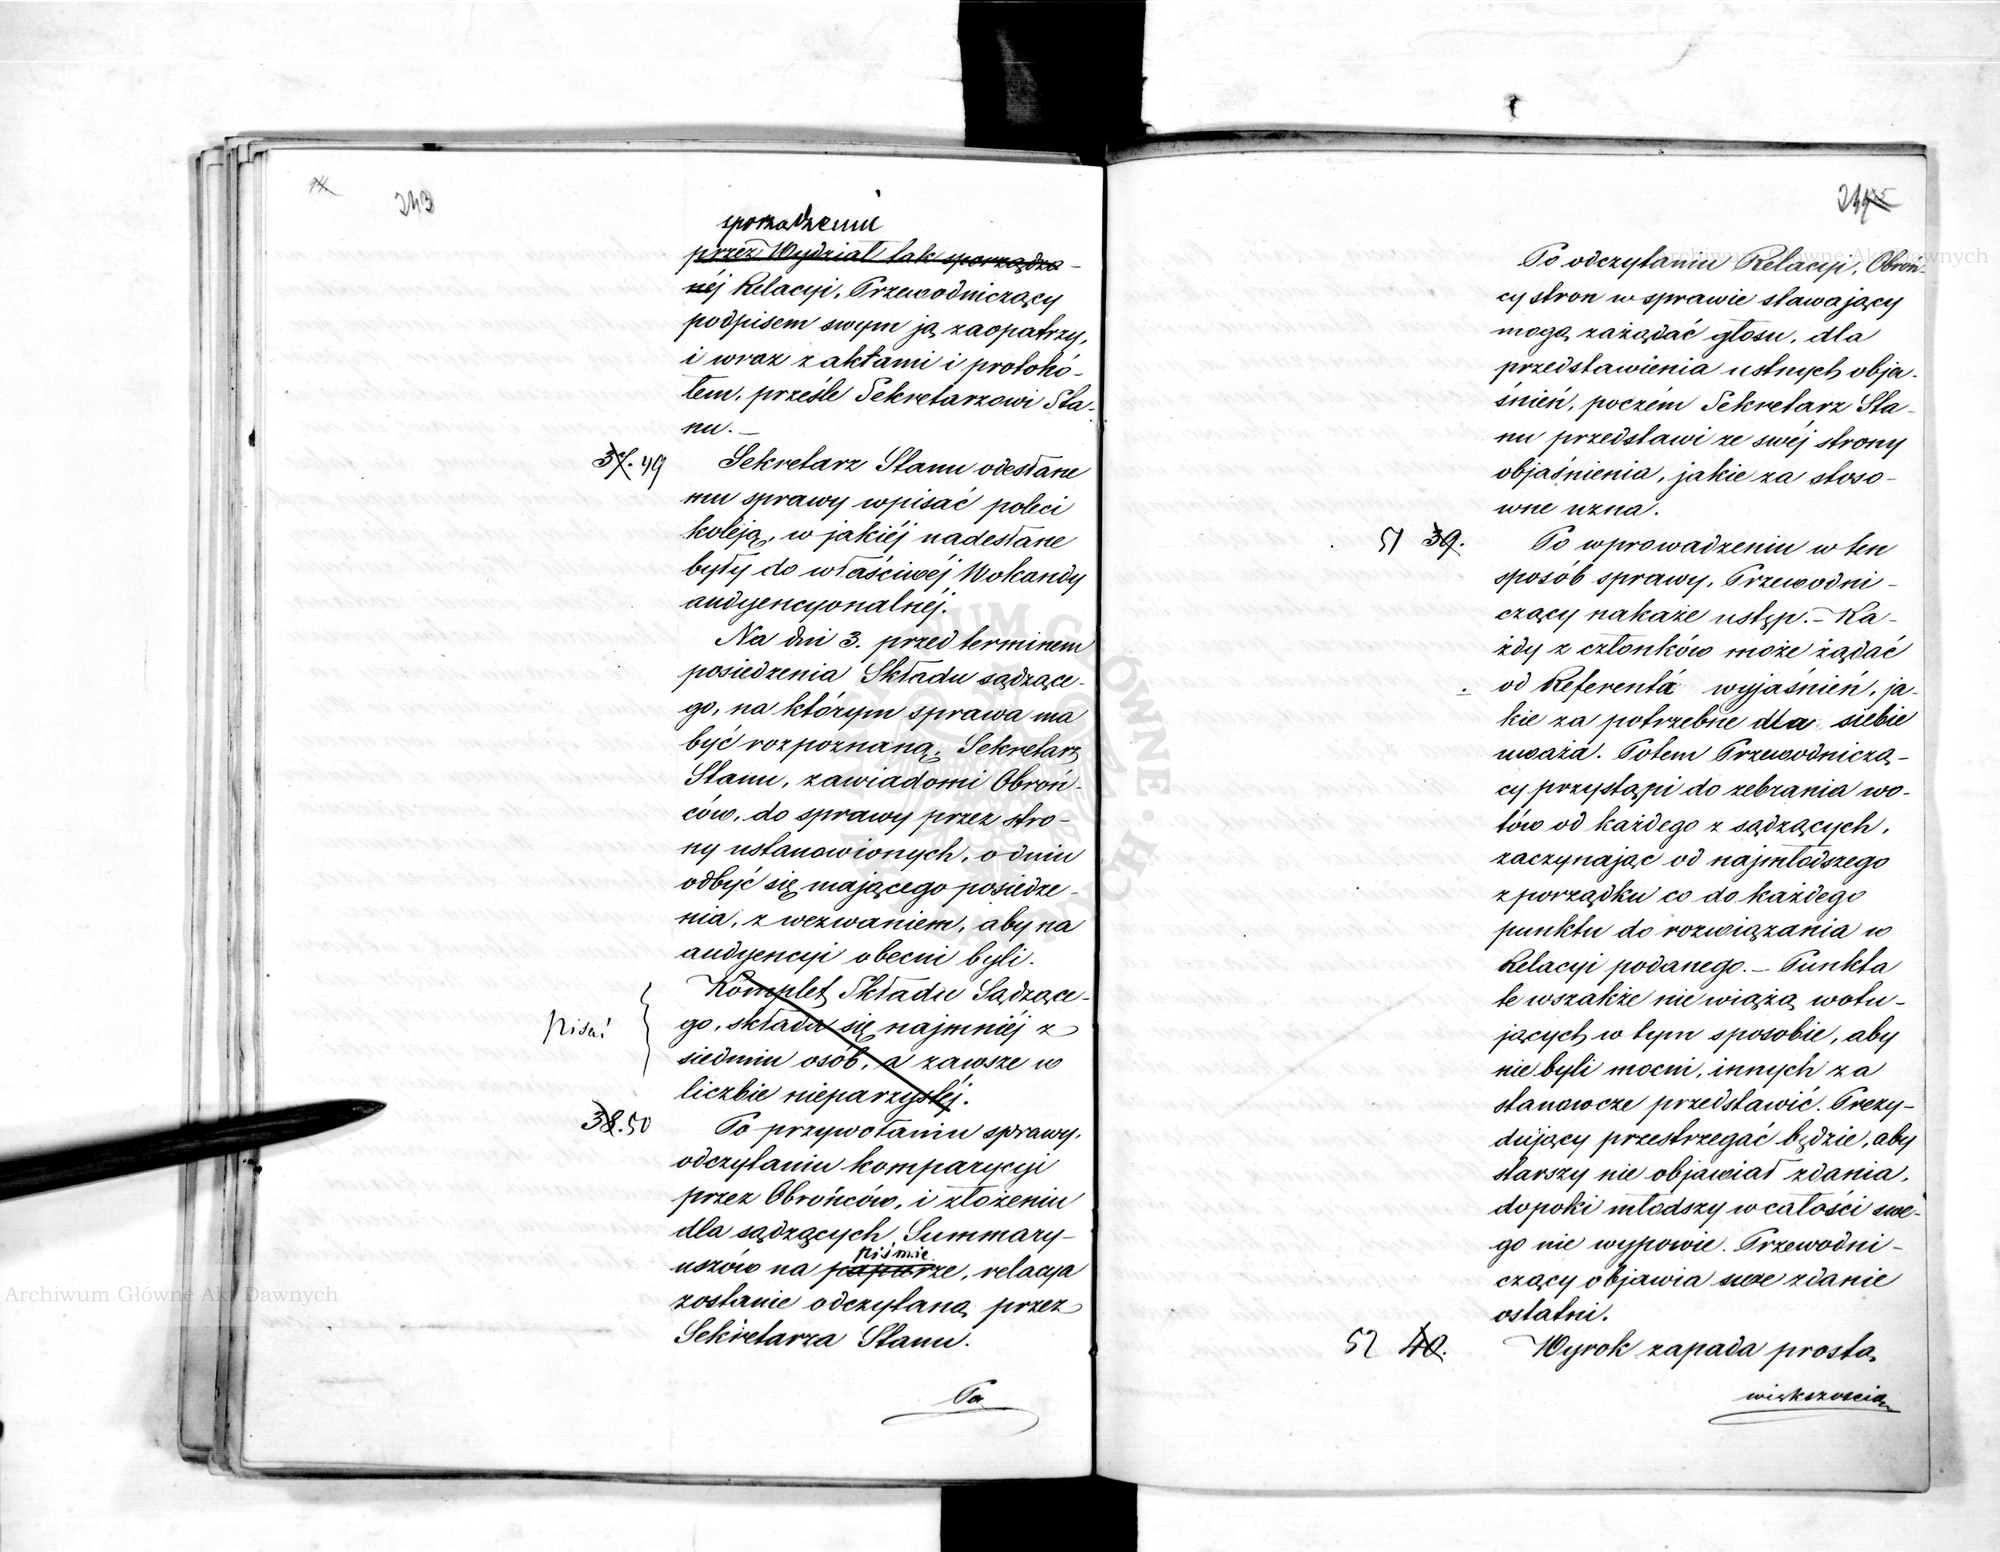 243
sporządzeniu
przez Wydział tak sporządzo-
néj Relacyi, Przewodniczący
podpisem swym ją zaopatrzy,
i wraz z aktami i protokó-
łem, prześle Sekretarzowi Sta-
nu.—
37. 49 Sekretarz Stanu odesłane
mu sprawy wpisać poleci
koleją, w jakiéj nadesłane
były do właściwéj Wokandy
audyencyonalnéj.
Na dni 3. przed terminem
posiedzenia Składu sądzące-
go, na którym sprawa ma
być rozpoznaną, Sekretarz
Stanu, zawiadomi Obroń-
ców, do sprawy przez stro-
ny ustanowionych, o dniu
odbyć się mającego posiedze-
nia, z wezwaniem, aby na
audyencyi obecni byli.
Komplet Składu Sądzące-
pisać go, składa się najmniéj z
siedmiu osób, a zawsze w
liczbie nieparzystéj.
38. 50 Po przywołaniu sprawy,
odczytaniu komparycyi
przez Obrońców, i złożeniu
dla sądzących Summary-
piśmie
uszów na papierze, relacya
zostanie odczytaną przez
Sekretarza Stanu.
Po
Po odczytaniu Relacyi, Obroń-
cy stron w sprawie stawający
mogą zażądać głosu, dla
przedstawienia ustnych obja-
śnień, poczém Sekretarz Sta-
nu przedstawi ze swéj strony
objaśnienia, jakie za stoso-
wne uzna.
51 39. Po wprowadzeniu w ten
sposób sprawy, Przewodni-
czący nakaże ustęp.— Ka-
żdy z członków może żądać
od Referenta wyjaśnień, ja-
kie za potrzebne dla siebie
uważa. Potem Przewodniczą-
cy przystąpi do zebrania wo-
tów od każdego z sądzących,
zaczynając od najmłodszego
z porządku co do każdego
punktu do rozwiązania w
Relacyi podanego.— Punkta
te wszakże nie wiążą wotu-
jących w tym sposobie, aby
nie byli mocni, innych za
stanowcze przedstawić. Prezy-
dujący przestrzegać będzie, aby
starszy nie objawiał zdania,
dopóki młodszy w całości swe-
go nie wypowie. Przewodni-
czący objawia swe zdanie
ostatni.
52 40. Wyrok zapada prostą
większością
Archiwum Główne Akt Dawnych
Archiwum Główne Akt Dawnych